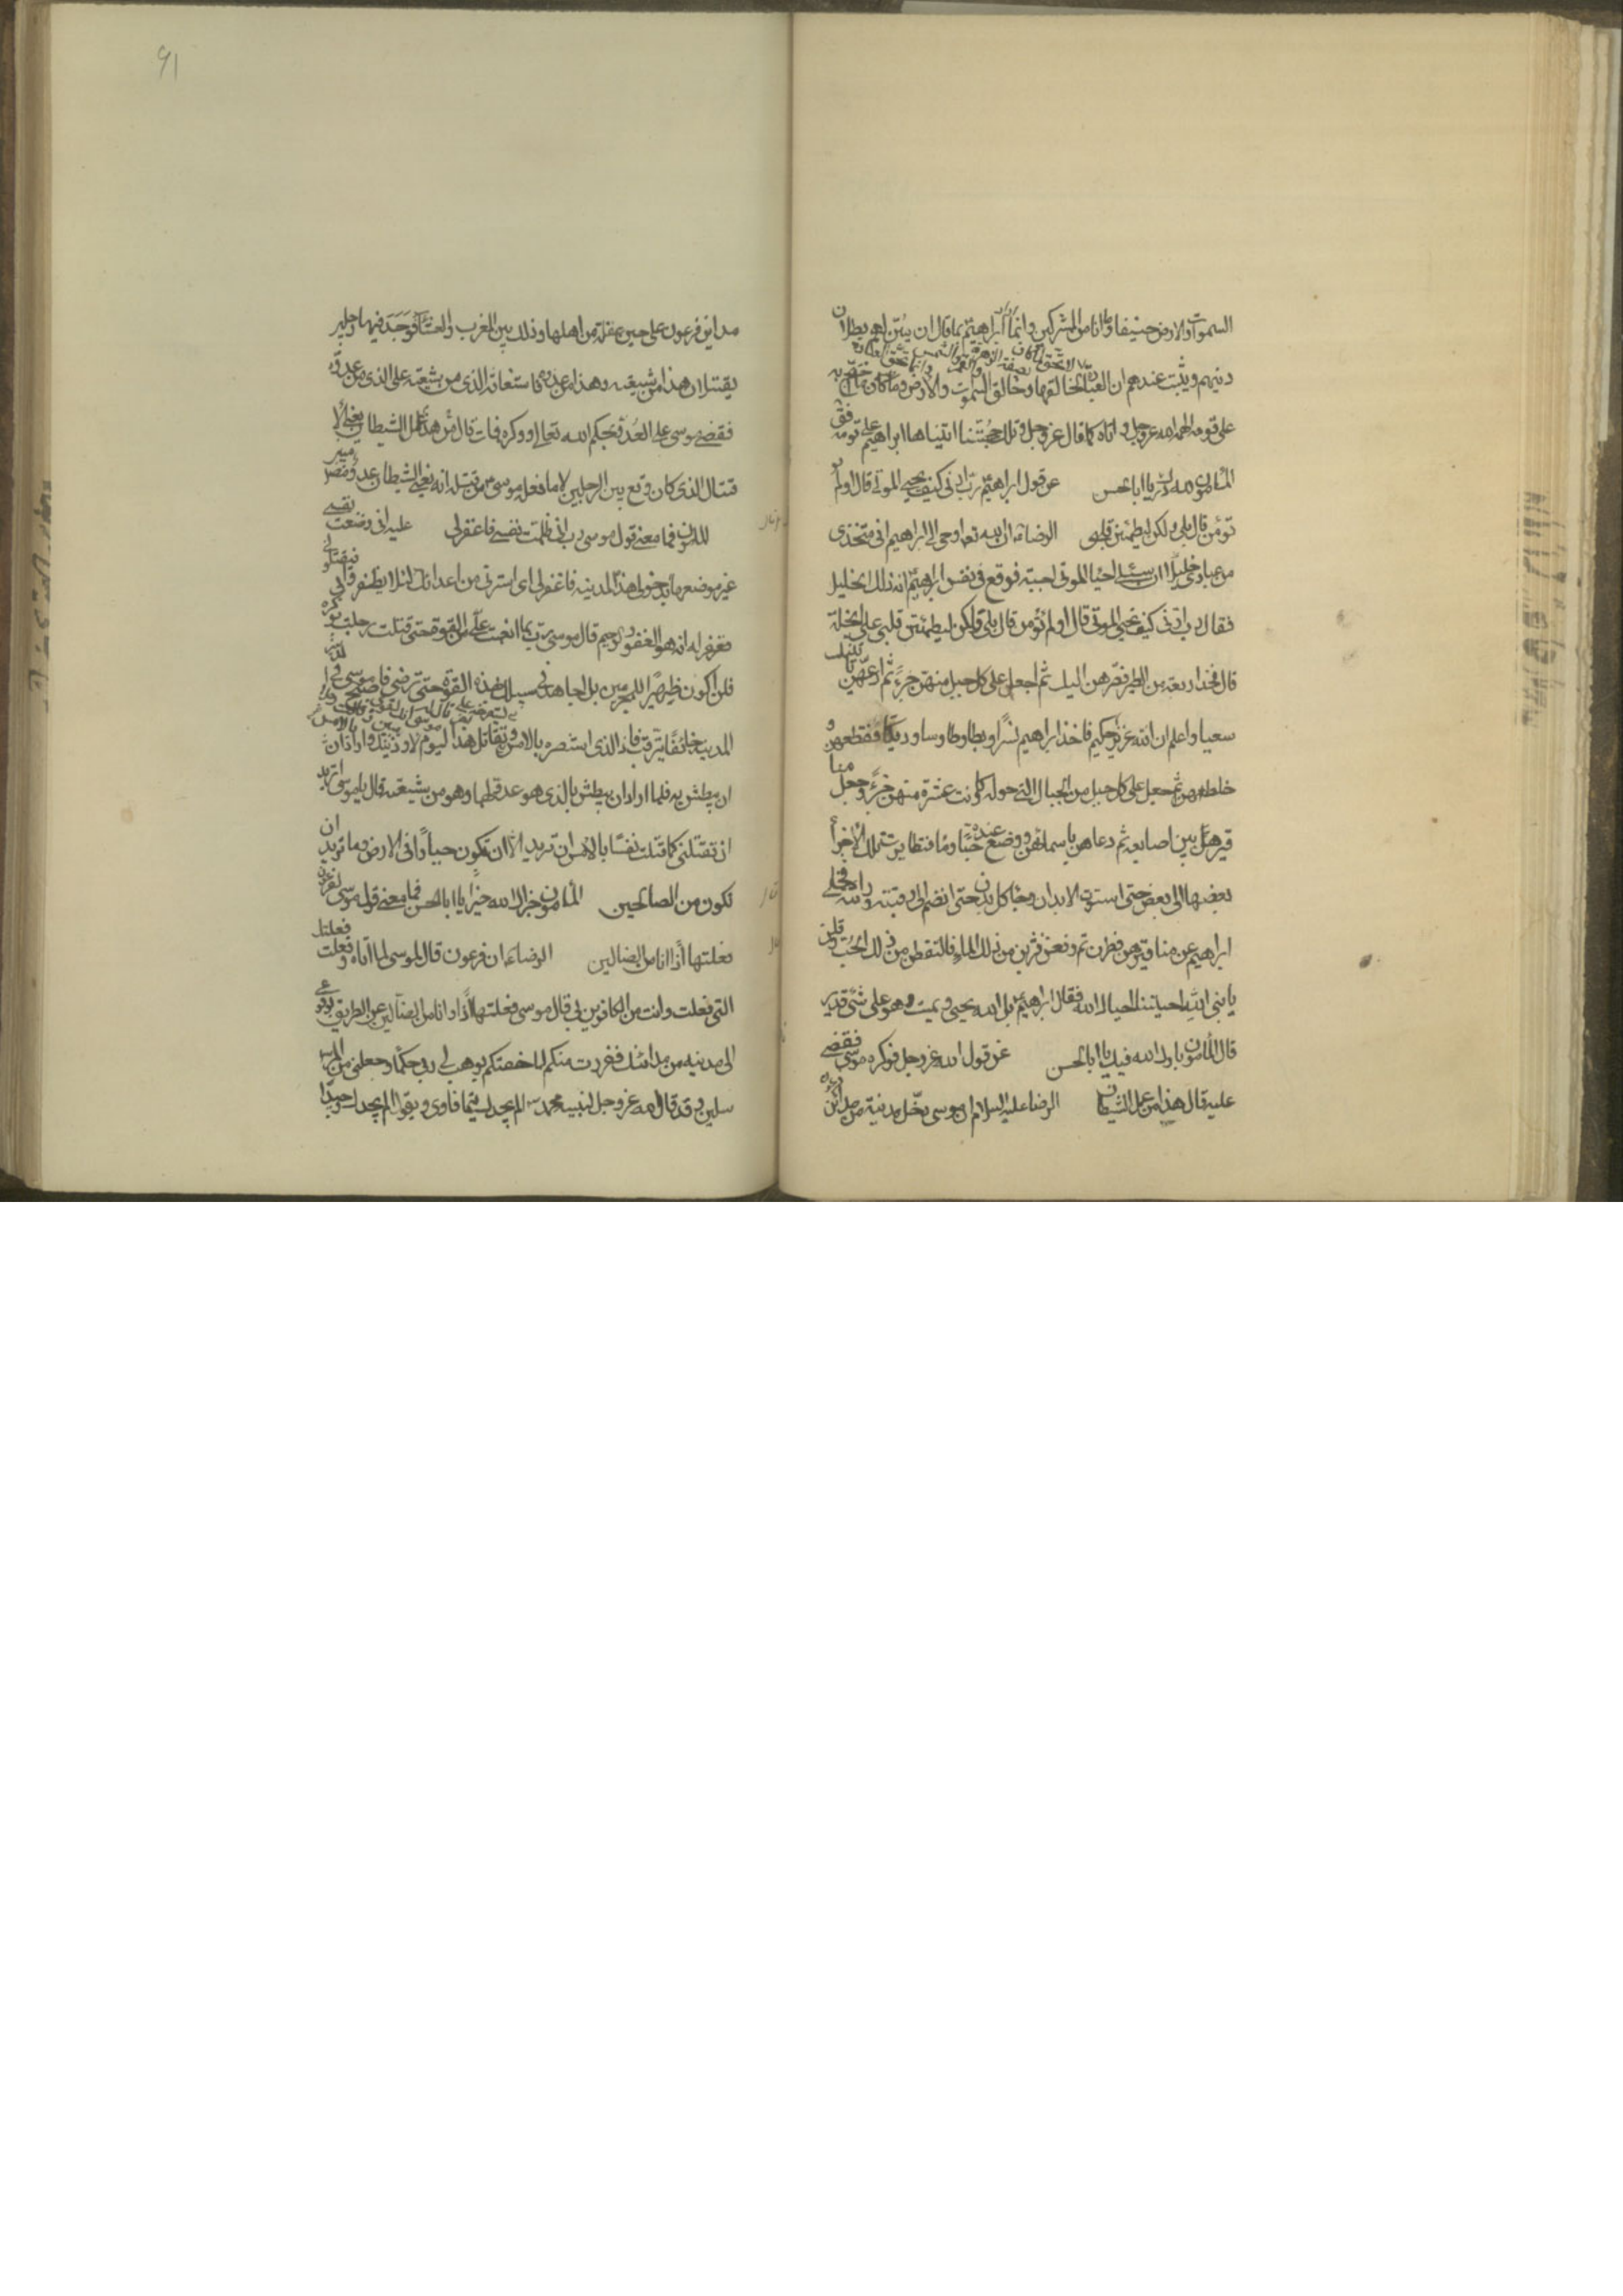 السموات والارض حنيفا وما انا من المشركين وانما اراد ابراهيم بما قال ان يبين لهم بطلان
دينهم ويثبت عندهم ان العبادة لا تحق لما كان بصفة الزهرة والقمر والشمس وانما تحق العبادة لخالقها وخالق السموات والارض وكان ما احتج به
على قومه الهمه الله عز وجل واتاه كما قال عز وجل وتلك حجتنا اتيناها ابراهيم على قومه فق
المأمون لله درك يا ابا الحسن عن قول ابراهيم رب ارنى كيف تحيى الموتى قال اولم
تؤمن قال بلى ولكن ليطمئن قلبى الرضا ان الله تعا اوحى الى ابراهيم انى متخذ
من عبادى خليلا ان سئلنى احيا الموتى اجبته فوقع فى نفس ابراهيم انه ذلك الخليل
فقال رب ارنى كيف تحيى الموتى قال اولم تؤمن قال بلى ولكن ليطمئن قلبى على الخلة
قال فخذ اربعة من الطير فصرهن اليك ثم اجعل على كل جبل منهن جزءً ثم ادعهن ياتينك
سعيا واعلم ان الله عزيز حكيم فاخذ ابراهيم نسرا وبطا وطاوسا وديكا فقطعهن و
خلطهن ثم جعل على كل جبل من الجبال التى حوله كانت عشرة منهن جزءً وجعل منا
قيرهن بين اصابعه ثم دعاهن باسمائهن ووضع عنده حبا وما فتطايرت تلك الاجزا
بعضها الى بعض حتى استوت الابدان وجا كل بدن حتى انضم الى رقبته وراسه فخلى
ابراهيم عن مناقيرهن فطرن ثم وقعن فشربن من ذلك الماء فالتقطن من ذلك الحب وقلن
يا نبى الله احييتنا احياك الله فقال ابراهيم بل الله يحيى ويميت وهو على شئ قدير
قال المأمون بارك الله فيك يا ابا الحسن عن قول الله عز وجل فوكزه موسى فقضى
عليه قال هذا من عمل الشيطان الرضا عليه السلام ان موسى دخل مدينة من مدائن
مداين فرعون على حين غفلة من اهلها وذلك بين المغرب والعشا فوجد فيها رجلين
يقتتلان هذا من شيعته وهذا من عدوه فاستغاثه الذى من شيعته على الذى من عدوه
فقضى موسى على العدو بحكم الله تعالى ووكزه فمات قال هذا من عمل الشيطان يعنى الا
قتتال الذى كان وقع بين الرجلين لا ما فعله موسى من قتله انه يعنى الشيطان عدو مضل مبين
المأمون فما معنى قول موسى رب انى ظلمت نفسى فاغفر لى عليه انى وضعت نفسى
غير موضعها بدخولى هذا المدينه فاغفر لى اى استرنى من اعدائك لئلا يظفروا بى فيقتلونى
فغفر له انه هو الغفور الرحيم قال موسى رب بما انعمت على من القوة حتى قتلت رجلا بوكزه
فلن اكون ظهيرا للمجرمين بل اجاهد فى سبيلك بهذه القوة حتى ترضى فاصبح موسى فى
المدينة خائفا يترقب فاذا الذى استنصره بالامس يستصرخه على اخر قال له موسى انك لغوى مبين قاتلت رجلا بالامس وتقاتل هذا اليوم لاوذينك واراد ان
ان يبطش به فلما اراد ان يبطش بالذى هو عدو لهما وهو من شيعته قال يا موسى اتريد
ان تقتلنى كما قتلت نفسا بالامس ان تريد الا ان تكون جبارا فى الارض وما تريد ان
تكون من الصالحين المأمون جزاك الله خيرا يا ابا الحسن فما معنى قول موسى لفرعون
فعلتها اذا وانا من الضالين الرضا ان فرعون قال لموسى لما اتاه وفعلت فعلتك
التى فعلت وانت من الكافرين بى قال موسى فعلتها اذا وانا من الضالين عن الطريق بوقوعى
الى مدينه من مدائنك ففررت منكم لما خفتكم فوهب لى ربى حكما وجعلنى من المر
سلين وقد قال الله عز وجل لنبيه محمد الم يجدك يتيما فاوى ويقول الم يجدك وحيدا
91